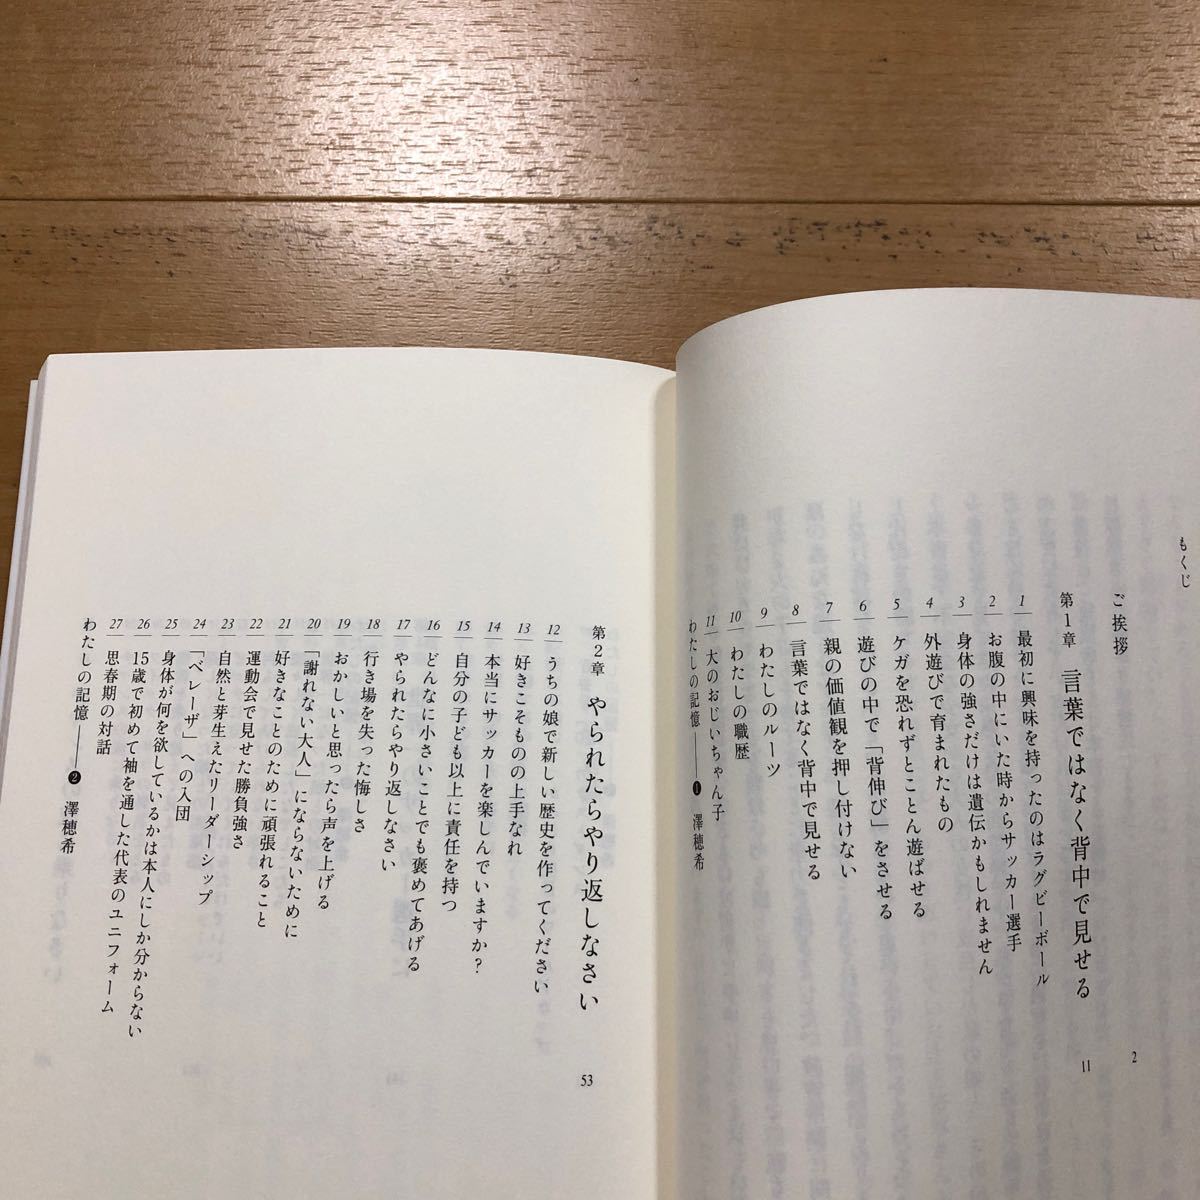 もくじ
ご挨拶 2
第1章 言葉ではなく背中で見せる 11
1 最初に興味を持ったのはラグビーボール
2 お腹の中にいた時からサッカー選手
3 身体の強さだけは遺伝かもしれません
4 外遊びで育まれたもの
5 ケガを恐れずとことん遊ばせる
6 遊びの中で「背伸び」をさせる
7 親の価値観を押し付けない
8 言葉ではなく背中で見せる
9 わたしのルーツ
10 わたしの職歴
11 大のおじいちゃん子
わたしの記憶――❶ 澤穂希
第2章 やられたらやり返しなさい 53
12 うちの娘で新しい歴史を作ってください
13 好きこそものの上手なれ
14 本当にサッカーを楽しんでいますか?
15 自分の子ども以上に責任を持つ
16 どんなに小さいことでも褒めてあげる
17 やられたらやり返しなさい
18 行き場を失った悔しさ
19 おかしいと思ったら声を上げる
20 「謝れない大人」にならないために
21 好きなことのために頑張れること
22 運動会で見せた勝負強さ
23 自然と芽生えたリーダーシップ
24 「ベレーザ」への入団
25 身体が何を欲しているかは本人にしか分からない
26 15歳で初めて袖を通した代表のユニフォーム
27 思春期の対話
わたしの記憶――❷ 澤穂希